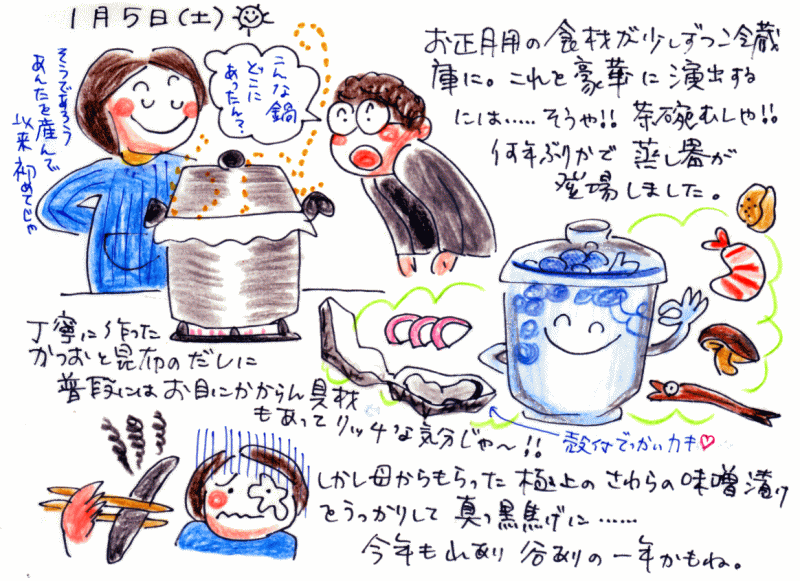 1月5日(土)
お正月用の食材が少しずつ冷蔵
庫に。これを豪華に演出する
には……そうや!!茶碗むしや!!
何年ぶりかで蒸し器が
登場しました。
こんな鍋
どこに
あったん?
そうであろう
あんたを産んで
以来初めてじゃ
丁寧に作った
かつおと昆布のだしに
普段にはお目にかからん具材
もあってリッチな気分じゃ〜!!
殻付でっかいカキ♡
しかし母からもらった極上のさわらの味噌漬け
をうっかりして真っ黒焦げに……
今年も山あり谷ありの一年かもね。